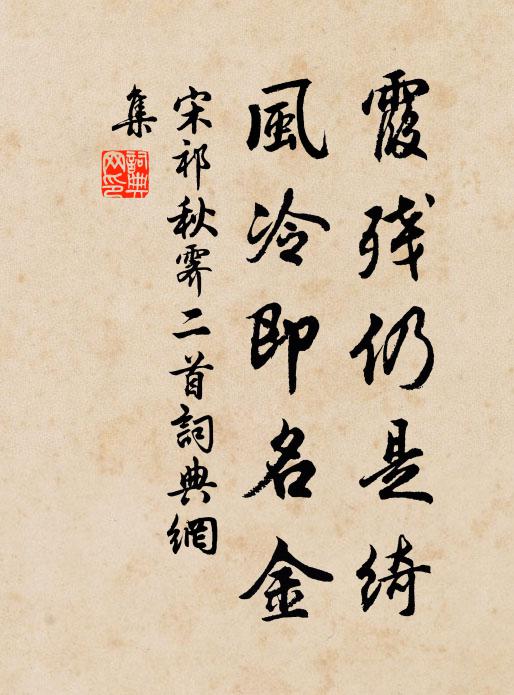 霞残仍是綺
風冷即名金
宋祁秋霽二首詞典網
集
詞典
网印